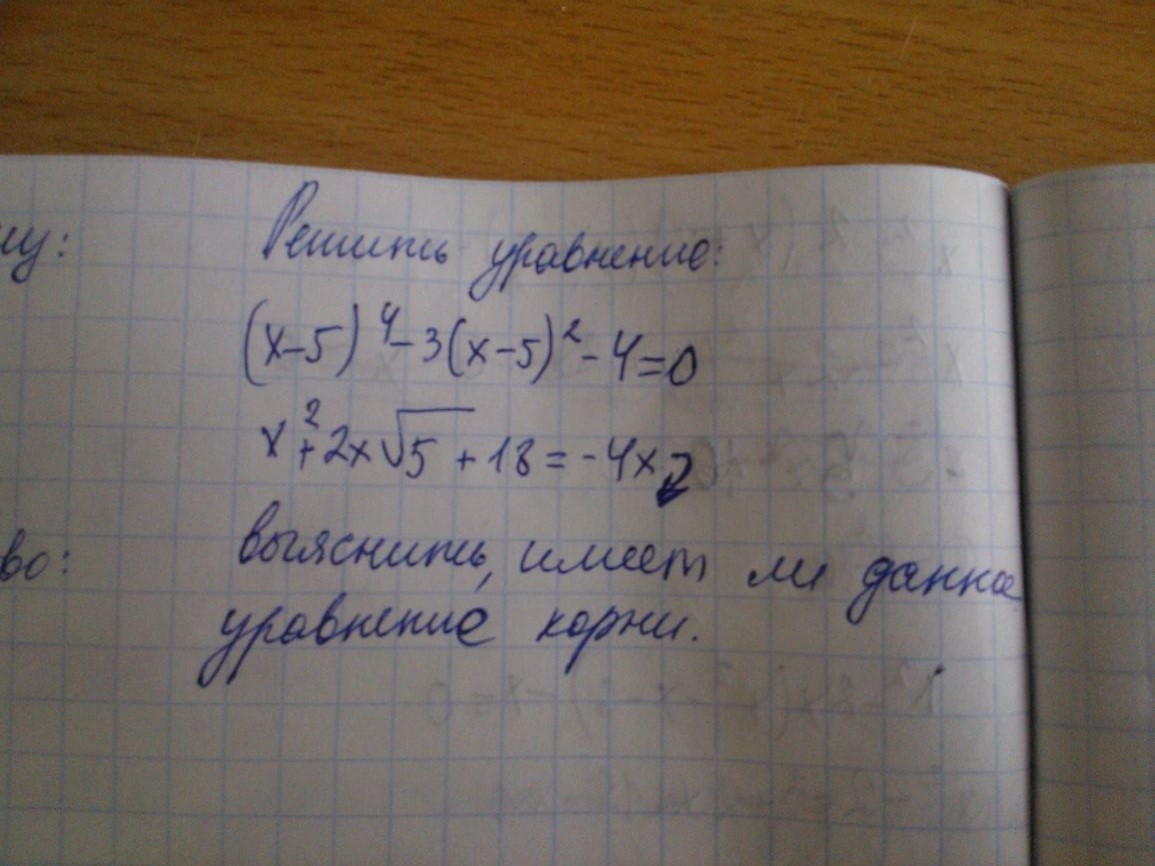 му:
Решить уравнение:
(x-5)⁴-3(x-5)²-4=0
x²+2x√5+18=-4x
во:
выяснить, имеет ли данное
уравнение корни.